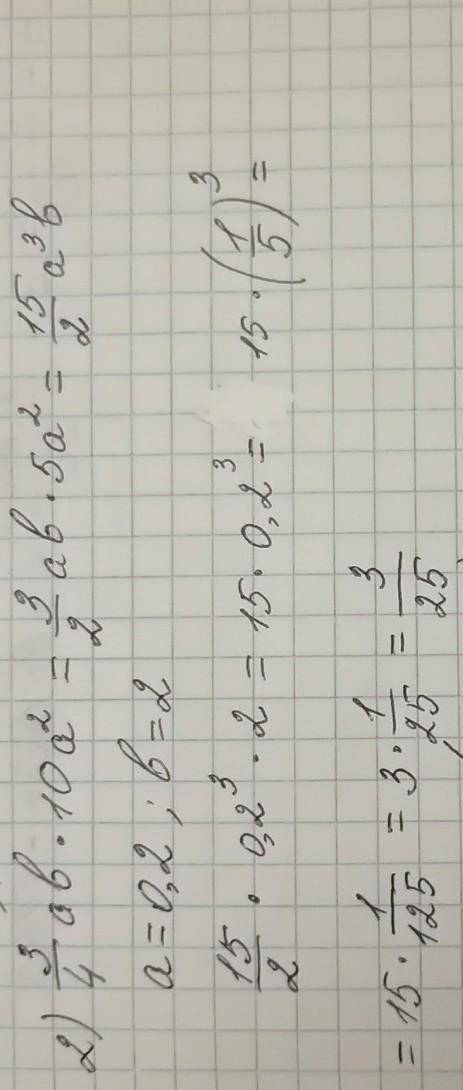 2) 3/4 ab · 10a² = 3/2 ab · 5a² = 15/2 a³b
a = 0,2 ; b = 2
15/2 · 0,2³ · 2 = 15 · 0,2³ = 15 · (1/5)³ =
= 15 · 1/125 = 3 · 1/25 = 3/25